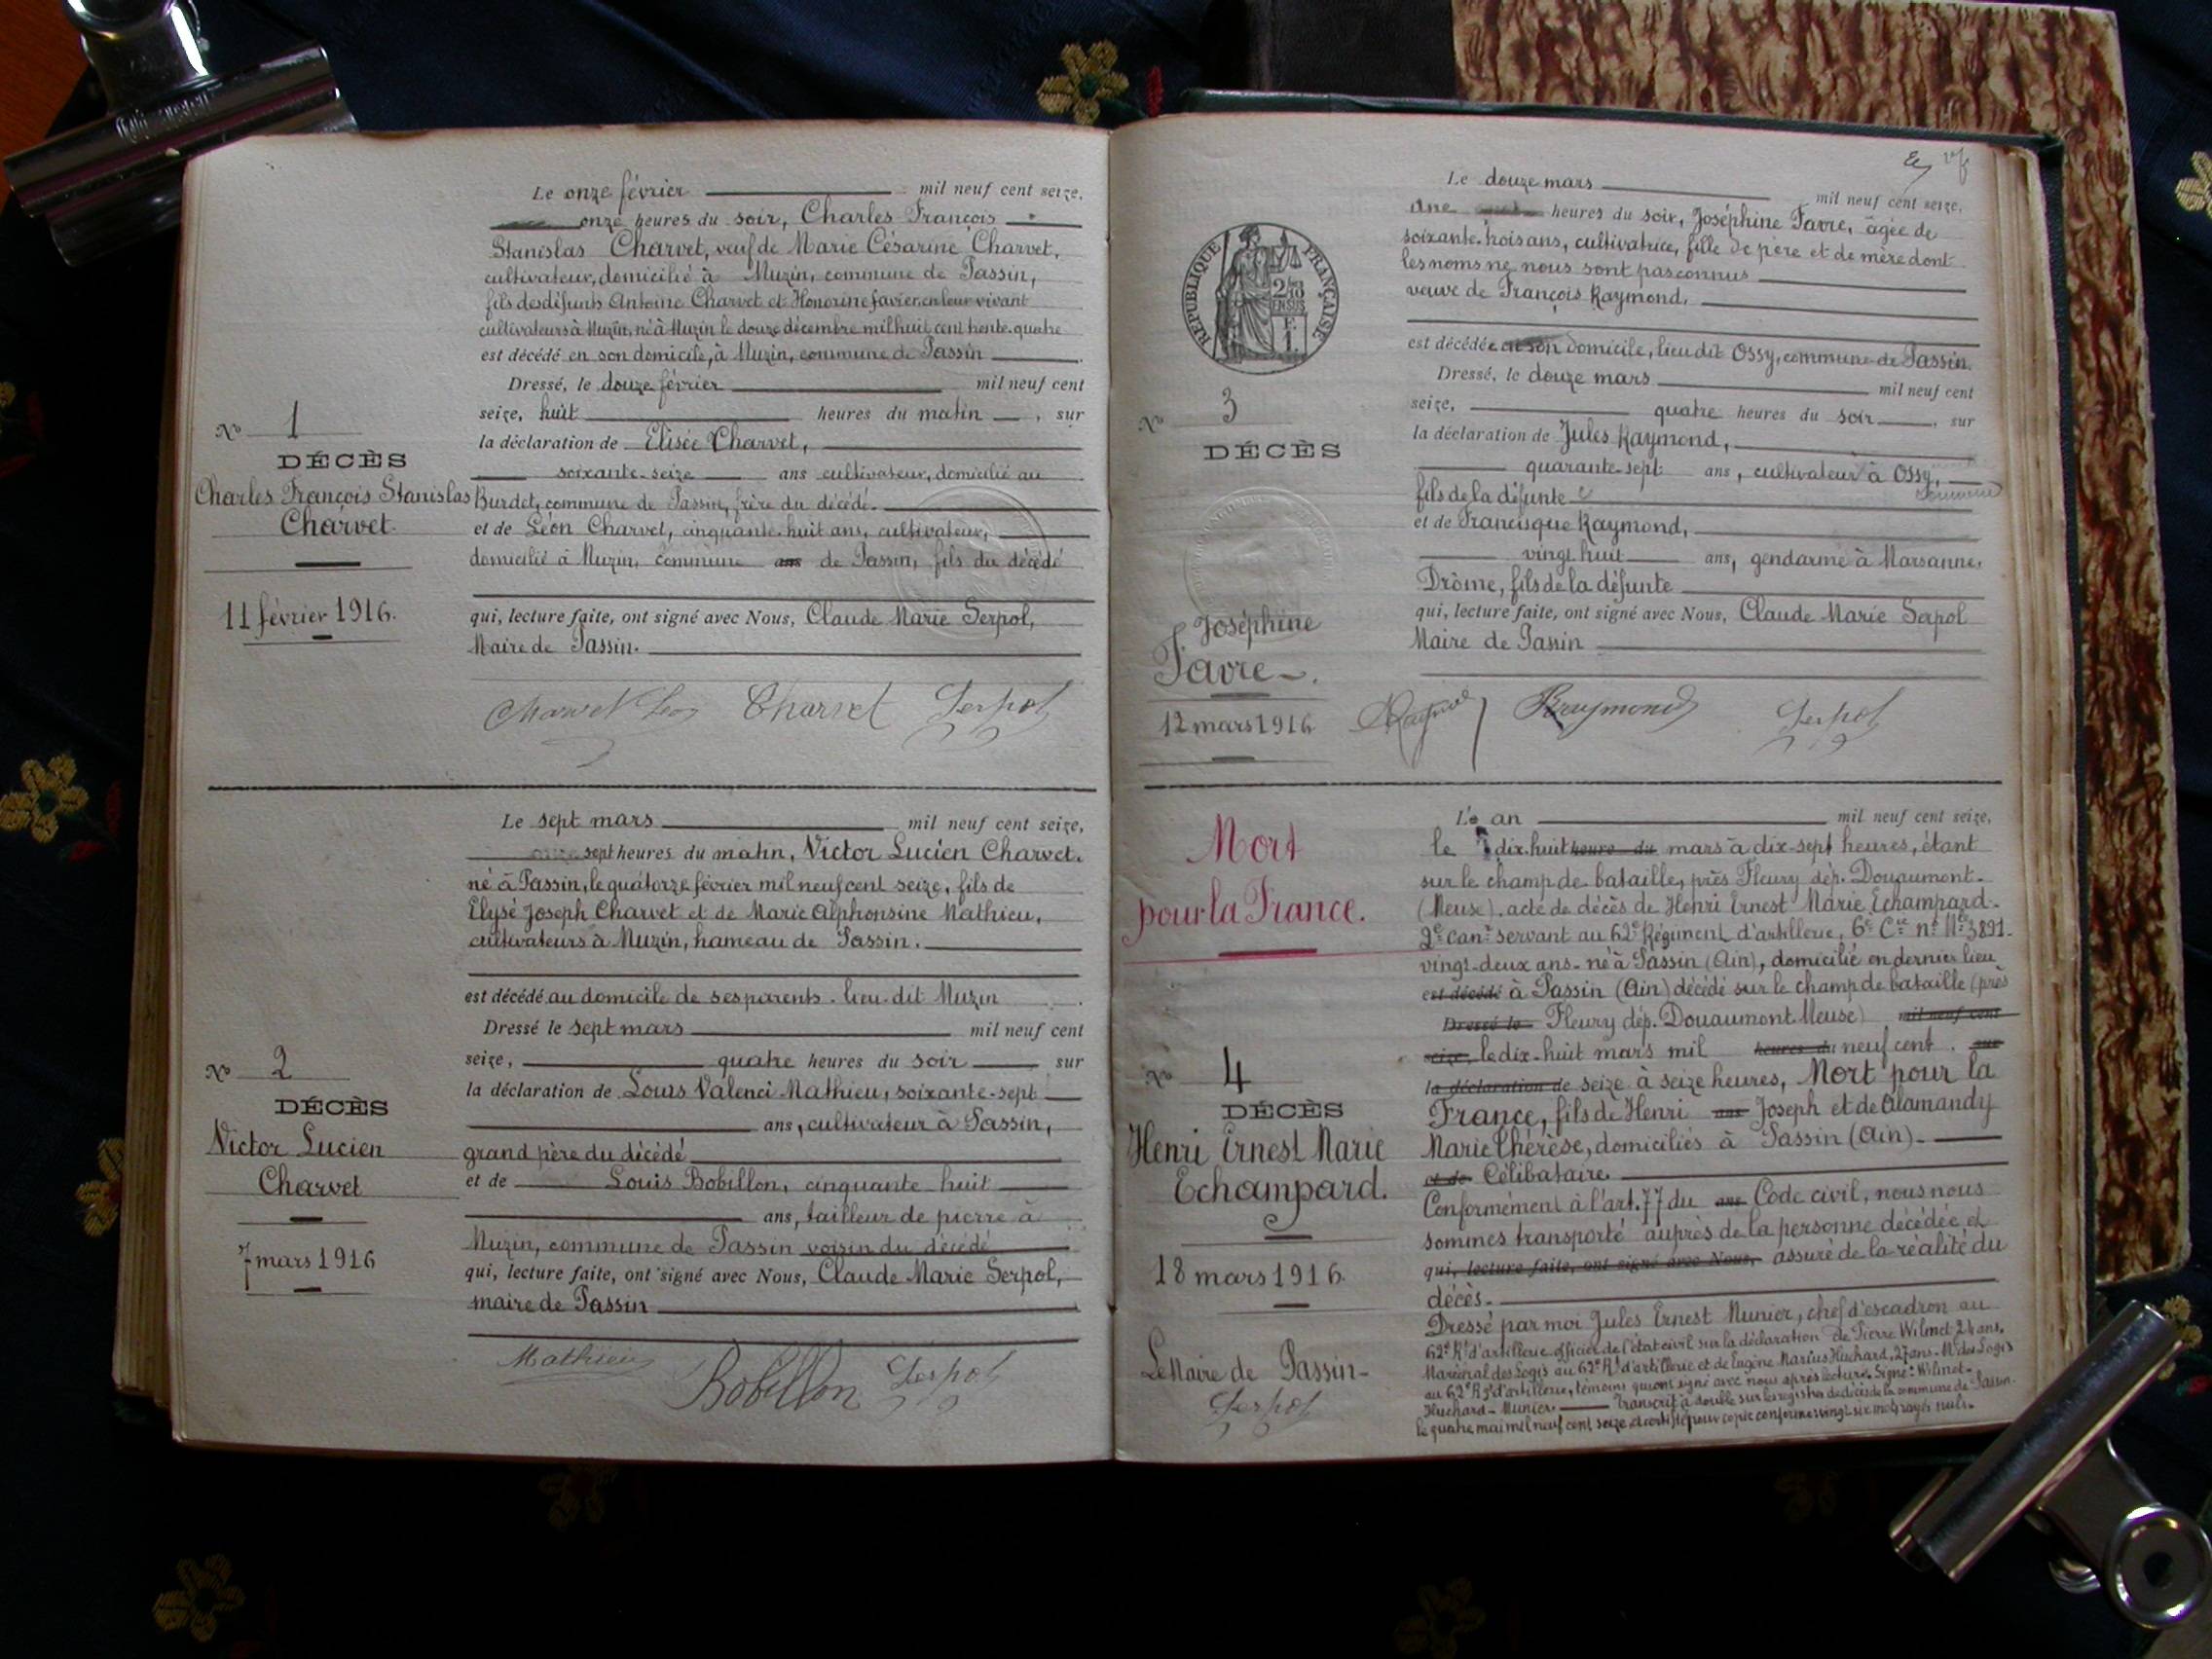 Le onze février mil neuf cent seize,
onze heures du soir, Charles François
Stanislas Charvet, veuf de Marie Césarine Charvet,
cultivateur, domicilié à Muzin, commune de Passin,
fils des défunts Antoine Charvet et Honorine Favier, en leur vivant
cultivateurs à Muzin, né à Muzin le douze décembre mil huit cent trente-quatre
est décédé en son domicile, à Muzin, commune de Passin
Dressé, le douze février mil neuf cent
seize, huit heures du matin, sur
la déclaration de Elisée Charvet,
soixante-seize ans cultivateur, domicilié au
Burdet, commune de Passin, frère du décédé.
et de Léon Charvet, cinquante-huit ans, cultivateur,
domicilié à Muzin, commune ans de Passin, fils du décédé
qui, lecture faite, ont signé avec Nous, Claude Marie Serpol,
Maire de Passin.
Charvet Léon Charvet Serpol
No 1
DÉCÈS
Charles François Stanislas
Charvet.
11 février 1916.
Le sept mars mil neuf cent seize,
sept heures du matin, Victor Lucien Charvet.
né à Passin, le quatorze février mil neuf cent seize, fils de
Elysé Joseph Charvet et de Marie Alphonsine Mathieu,
cultivateurs à Muzin, hameau de Passin.
est décédé au domicile de ses parents. lieu-dit Muzin
Dressé le sept mars mil neuf cent
seize, quatre heures du soir sur
la déclaration de Louis Valenci Mathieu, soixante-sept
ans, cultivateur à Passin,
grand père du décédé
et de Louis Bobillon, cinquante huit
ans, tailleur de pierre à
Muzin, commune de Passin voisin du décédé
qui, lecture faite, ont signé avec Nous, Claude Marie Serpol,
maire de Passin
Mathieu Bobillon Serpol
No 2
DÉCÈS
Victor Lucien
Charvet
7 mars 1916
RÉPUBLIQUE FRANÇAISE
2/10
EN SUS
F.
1.
Le douze mars mil neuf cent seize,
une heures du soir, Joséphine Favre, âgée de
soixante-trois ans, cultivatrice, fille de père et de mère dont
les noms ne nous sont pas connus
veuve de François Raymond,
est décédée en son domicile, lieu dit Ossy, commune de Passin.
Dressé, le douze mars mil neuf cent
seize, quatre heures du soir, sur
la déclaration de Jules Raymond,
quarante-sept ans, cultivateur à Ossy,
fils de la défunte
et de Francisque Raymond,
vingt huit ans, gendarme à Marsanne,
Drôme, fils de la défunte
qui, lecture faite, ont signé avec Nous, Claude Marie Serpol
Maire de Passin
Raymond Serpol
No 3
DÉCÈS
Joséphine
Favre.
12 mars 1916
Mort
pour la France.
L' an mil neuf cent seize,
le dix-huit heure du mars à dix-sept heures, étant
sur le champ de bataille, près Fleury dép. Douaumont.
(Meuse). acte de décès de Henri Ernest Marie Echampard.
2e can. servant au 62e Régiment d'artillerie, 6e Cie no Mle 3891.
vingt-deux ans - né à Passin (Ain), domicilié en dernier lieu
est décédé à Passin (Ain) décédé sur le champ de bataille (près
Dressé le Fleury dép. Douaumont Meuse) mil neuf cent
seize, le dix-huit mars mil heures du neuf cent, sur
la déclaration de seize à seize heures, Mort pour la
France, fils de Henri ans Joseph et de Quamandy
Marie Thérèse, domiciliés à Passin (Ain)
et de Célibataire.
Conformément à l'art. 77 du ans Code civil, nous nous
sommes transporté auprès de la personne décédée et
qui, lecture faite, ont signé avec Nous, assuré de la réalité du
décès.
Dressé par moi Jules Ernest Munier, chef d'escadron au
62e Rt d'artillerie officier de l'état civil sur la déclaration de Pierre Wilmet 24 ans.
Maréchal des Logis au 62e Rt d'artillerie et de Eugène Marius Huchard, 27 ans - Mal des Logis
au 62e Rgt d'artillerie, témoins qui ont signé avec nous après lecture. Signé: Wilmet-
Huchard - Munier. Transcrit à double sur les registres de décès de la commune de Passin.
le quatre mai mil neuf cent seize et certifié pour copie conforme vingt-six mots rayés nuls.
No 4
DÉCÈS
Henri Ernest Marie
Echampard.
18 mars 1916.
Le Maire de Passin-
Serpol